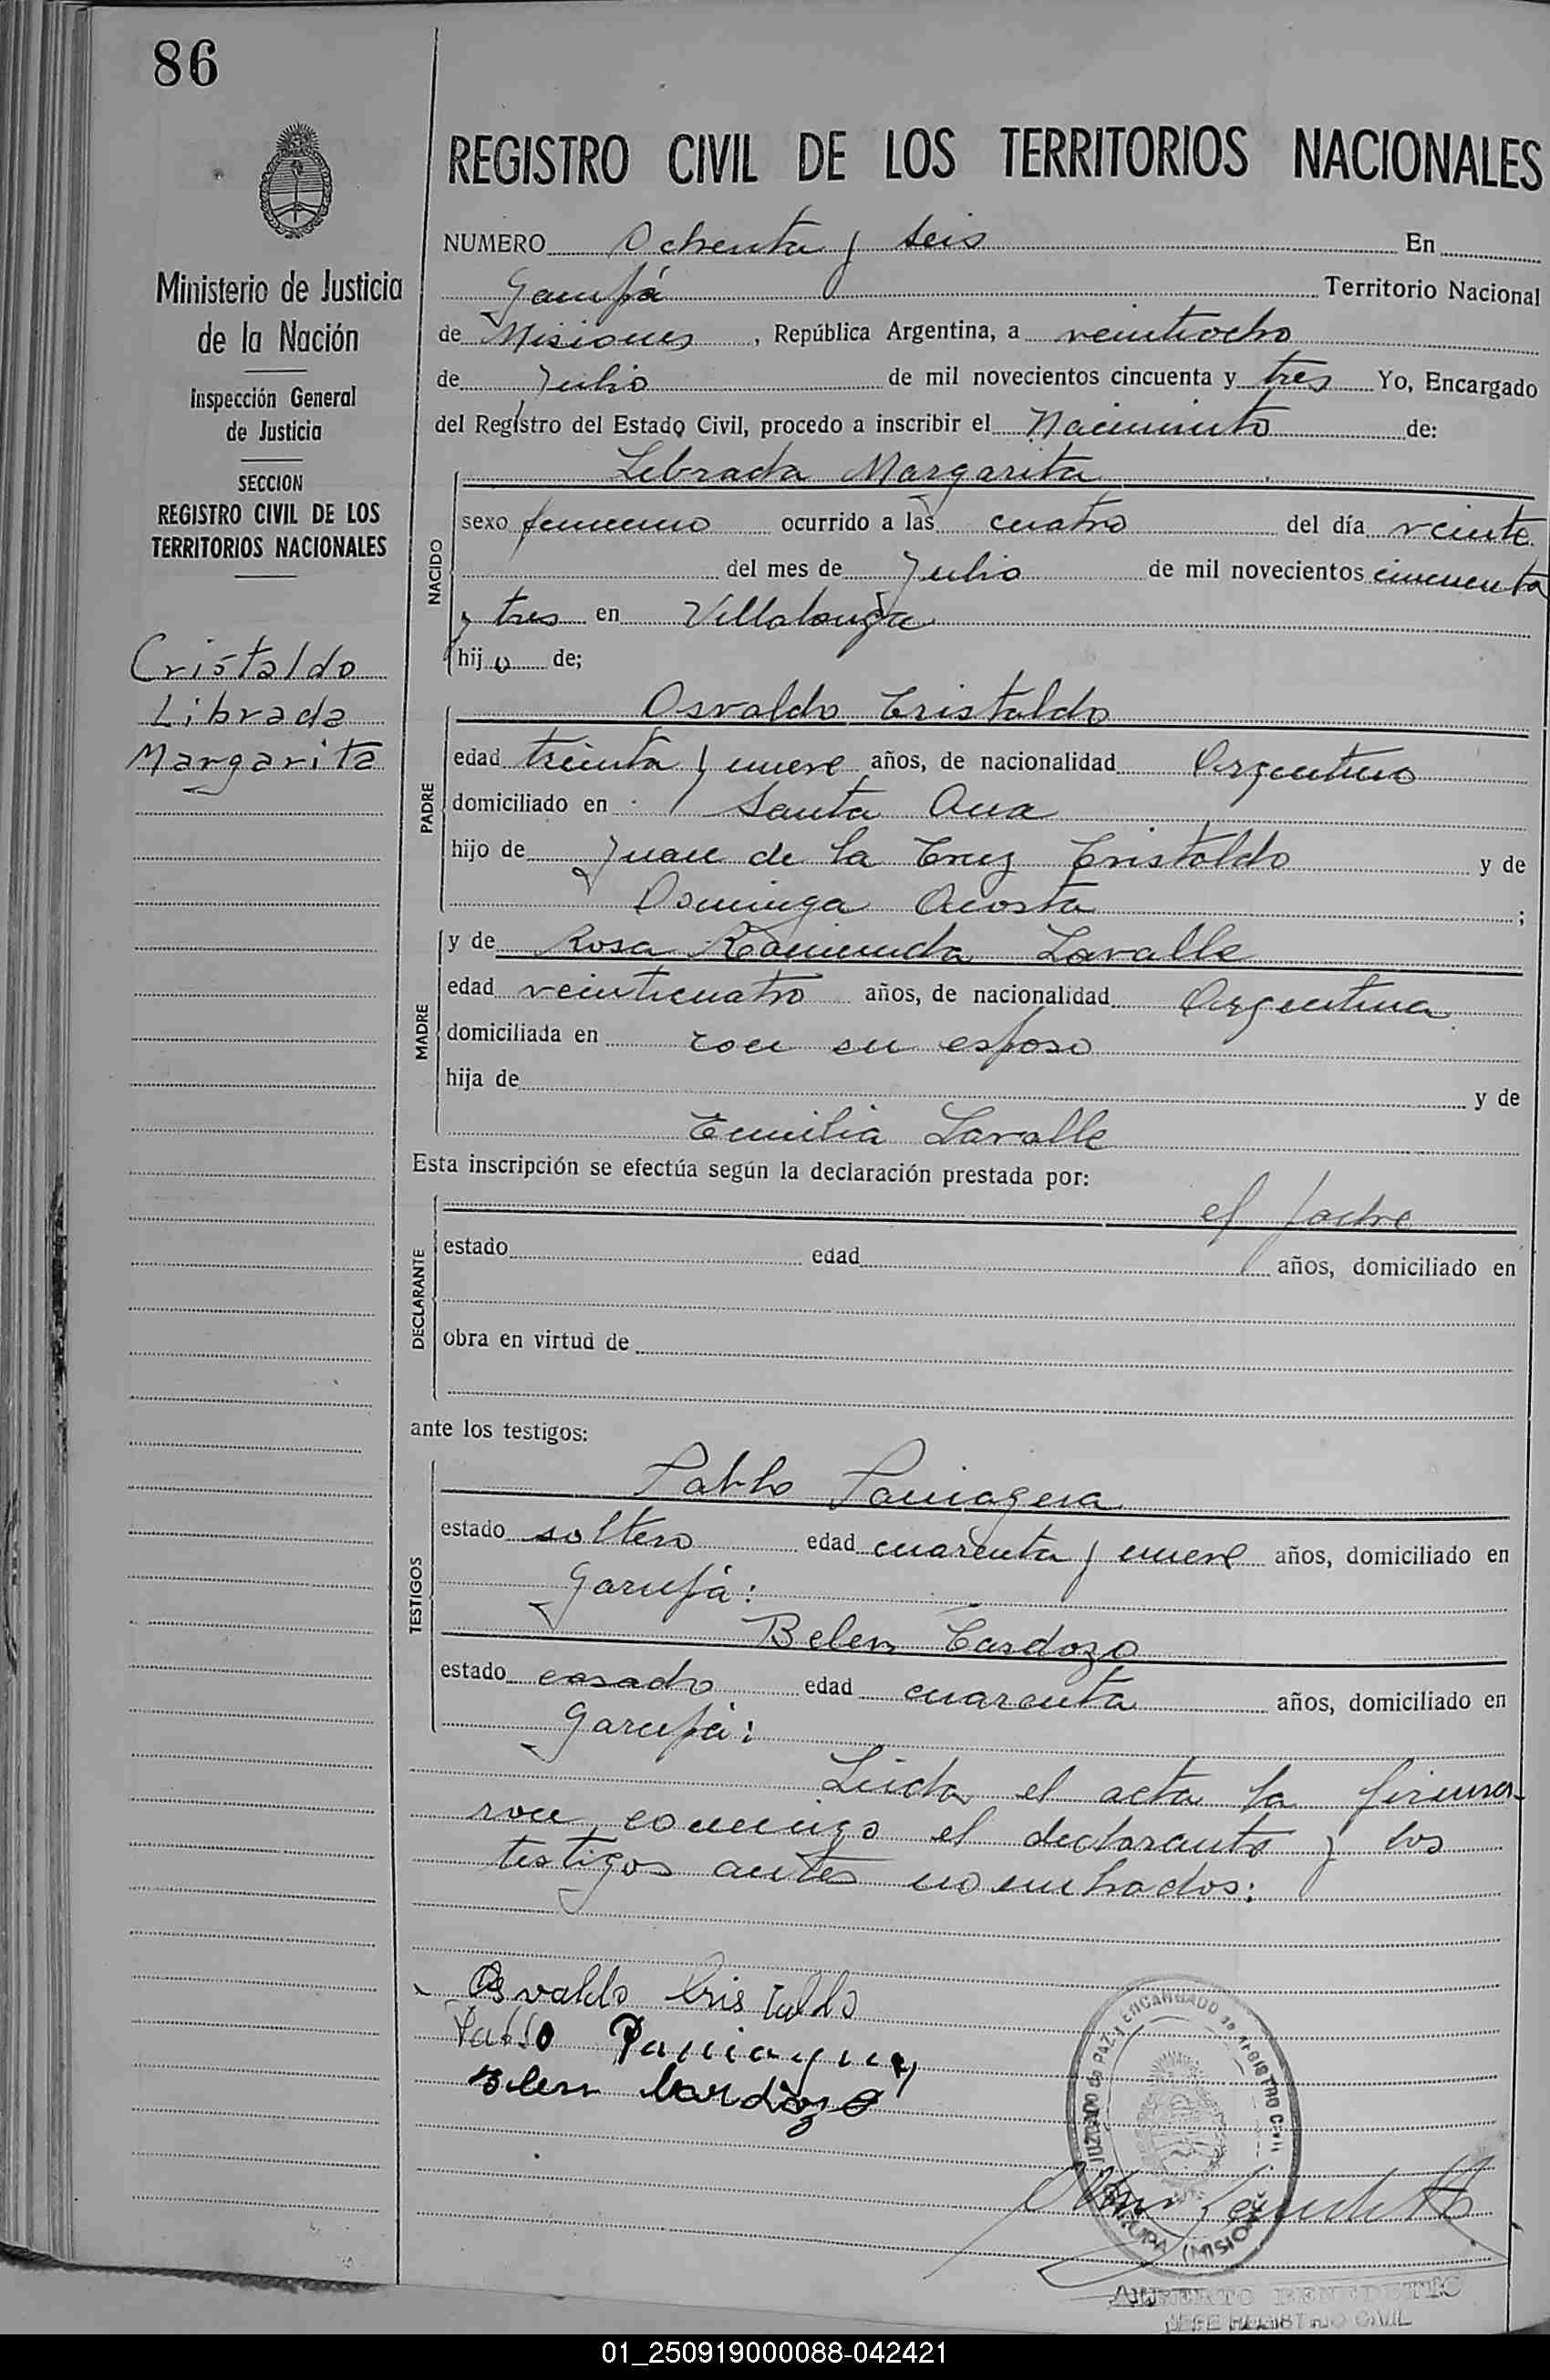 86
REGISTRO CIVIL DE LOS TERRITORIOS NACIONALES
Ministerio de Justicia
de la Nación
Inspección General
de Justicia
SECCION
REGISTRO CIVIL DE LOS
TERRITORIOS NACIONALES
Cristaldo
Librada
Margarita
NUMERO Ochenta y seis En
Garupá Territorio Nacional
de Misiones, República Argentina, a veintiocho
de Julio de mil novecientos cincuenta y tres Yo, Encargado
del Registro del Estado Civil, procedo a inscribir el Nacimiento de:
Librada Margarita
NACIDO
sexo femenino ocurrido a las cuatro del día veinte
del mes de Julio de mil novecientos cincuenta
y tres en Villalonga
hijo de;
PADRE
Osvaldo Cristaldo
edad treinta y nueve años, de nacionalidad Argentino
domiciliado en Santa Ana
hijo de Juan de la Cruz Cristaldo y de
Dominga Acosta;
MADRE
y de Rosa Raimunda Lavalle
edad veinticuatro años, de nacionalidad Argentina
domiciliada en con su esposo
hija de y de
Emilia Lavalle
Esta inscripción se efectúa según la declaración prestada por:
DECLARANTE
el padre
estado edad años, domiciliado en
obra en virtud de
ante los testigos:
TESTIGOS
Pablo Paniagua
estado soltero edad cuarenta y nueve años, domiciliado en
Garupá:
Belen Cardozo
estado casado edad cuarenta años, domiciliado en
Garupá:
Leida el acta la firma-
ron conmigo el declarante y los
testigos antes nombrados:
Osvaldo Cristaldo
Pablo Paniagua
Belen Cardozo
JUZGADO de PAZ y ENCARGADO de REGISTRO Civil
GARUPA (MISIONES)
JEFE REGISTRO CIVIL
01_250919000088-042421